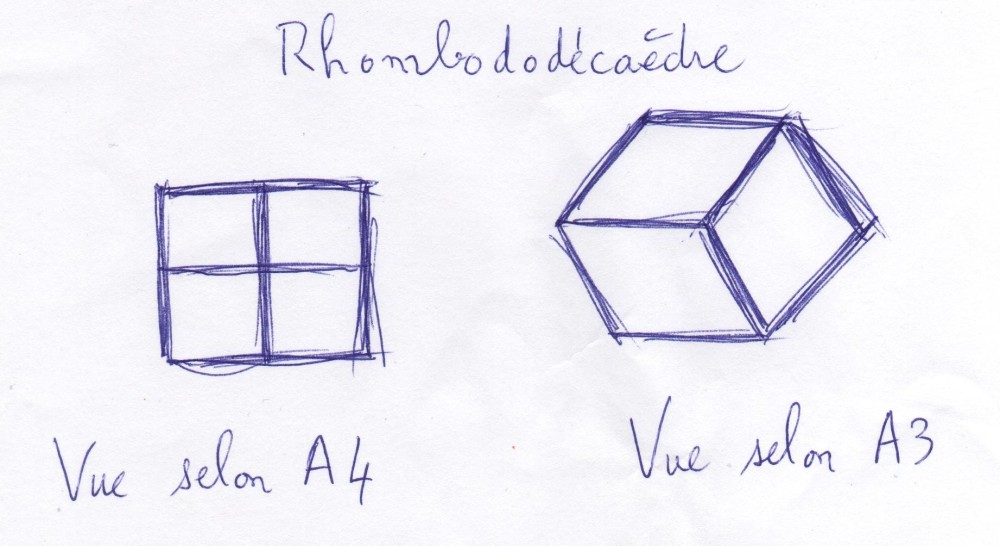 Rhombododécaèdre
Vue selon A4
Vue selon A3